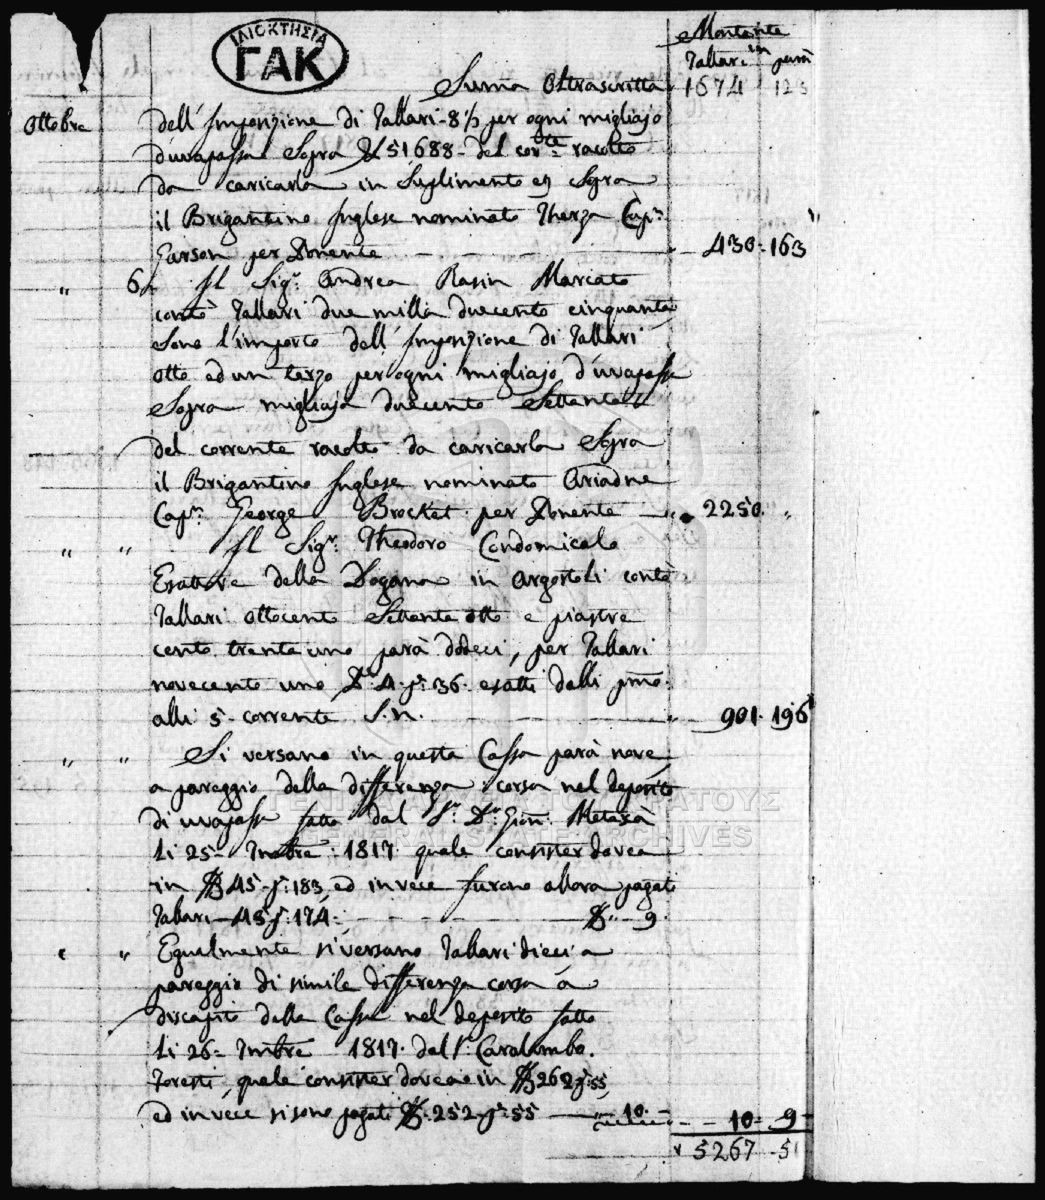 ΙΔΙΟΚΤΗΣΙΑ
ΓΑΚ
Montante
Tallari in parà
Suma Oltrascritta 1674 123
Ottobre dell' Imposizione di Tallari 8⅓ per ogni migliajo
d'uvapassa Sopra 51688 del cor:te racolto
da caricarla in Suplimento Sopra
il Brigantino Inglese nominato Cap:n
per Ponente 430 163
" 6 Il Sig:r Andrea Rasin Marcato
contò Tallari due milla duecento cinquanta
Sono l'importo dell' Imposizione di Tallari
otto ed un terzo per ogni migliajo d'uvapassa
Sopra migliaja duecento Settanta
del corrente racolto da caricarla Sopra
il Brigantino Inglese nominato Ariadne
Cap:n George Brocket per Ponente 2250 "
" " Il Sig:r Theodoro Condomicalo
Esattore della Dogana in Argostoli contò
Tallari ottocento Settanta otto e piastre
cento trenta uno parà dodeci, per Tallari
novecento uno 4 p: 36 esatti dalli pmo
alli 5 corrente S.n. 901 196
" " Si versano in questa Cassa parà nove
a pareggio della differenza corsa nel deposito
di uvapassa fatto dal S:r D:r Gion: Metaxà
li 25 1817 quale consister dovea
in 45 p: 183, ed invece furono allora pagati
Tallari 45 p: 174 9
ΓΕΝΙΚΑ ΑΡΧΕΙΑ ΤΟΥ ΚΡΑΤΟΥΣ
GENERAL STATE ARCHIVES
" " Egualmente si versano Tallari dieci a
pareggio di simile differenza corsa a
discapito della Cassa nel deposito fatto
li 26 1817 del S:r Caralambo
Foresti, quale consister dovea in 262 p: 55
ed in vece si sono pagati 252 p: 55 10 10 9
5267 51